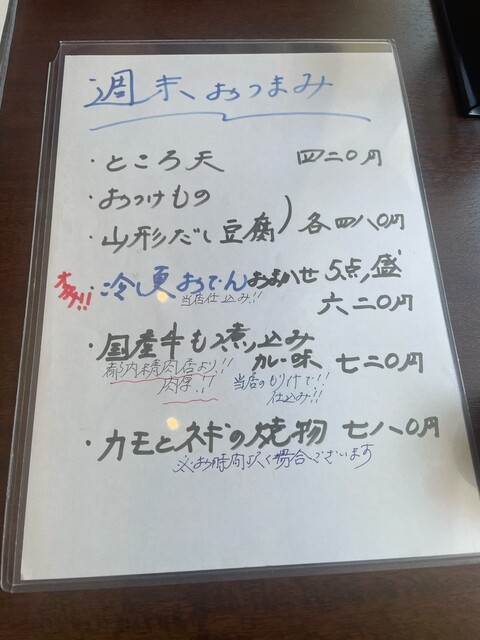 週末おつまみ
・ところ天 四二〇円
・おつけもの
・山形だし豆腐 各四八〇円
・冷更おでんおまかせ5点盛
当店仕込み!!
六二〇円
・国産牛もつ煮込み
都内精肉店より!! カレー味 七二〇円
肉厚!! 当店のもりつけで!!
仕込み!!
・カモとネギの焼物 七八〇円
※お時間頂く場合ございます